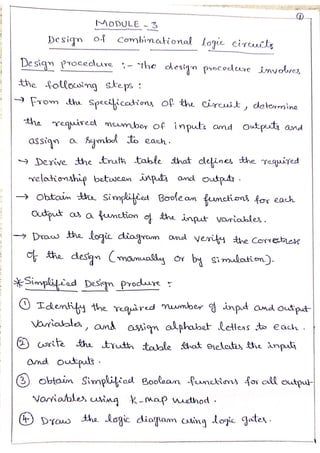 ①
MODULE - 3
Design of Combinational logic circuits
Design procedure :- The design procedure involves
the following steps :
→ From the Specifications of the circuit, determine
the required number of inputs and outputs and
assign a symbol to each.
→ Derive the truth table that defines the required
relationship between inputs and outputs.
→ Obtain the Simplified Boolean functions for each
output as a function of the input variables.
→ Draw the logic diagram and verify the Correctness
of the design (manually or by simulation).
*Simplified Design produre :
① Identify the required number of input and output
Variables, and assign alphabet letters to each.
② write the truth table that relates the inputs
and outputs.
③ Obtain Simplified Boolean functions for all output
Variables using K-map method.
④ Draw the logic diagram using logic gates.